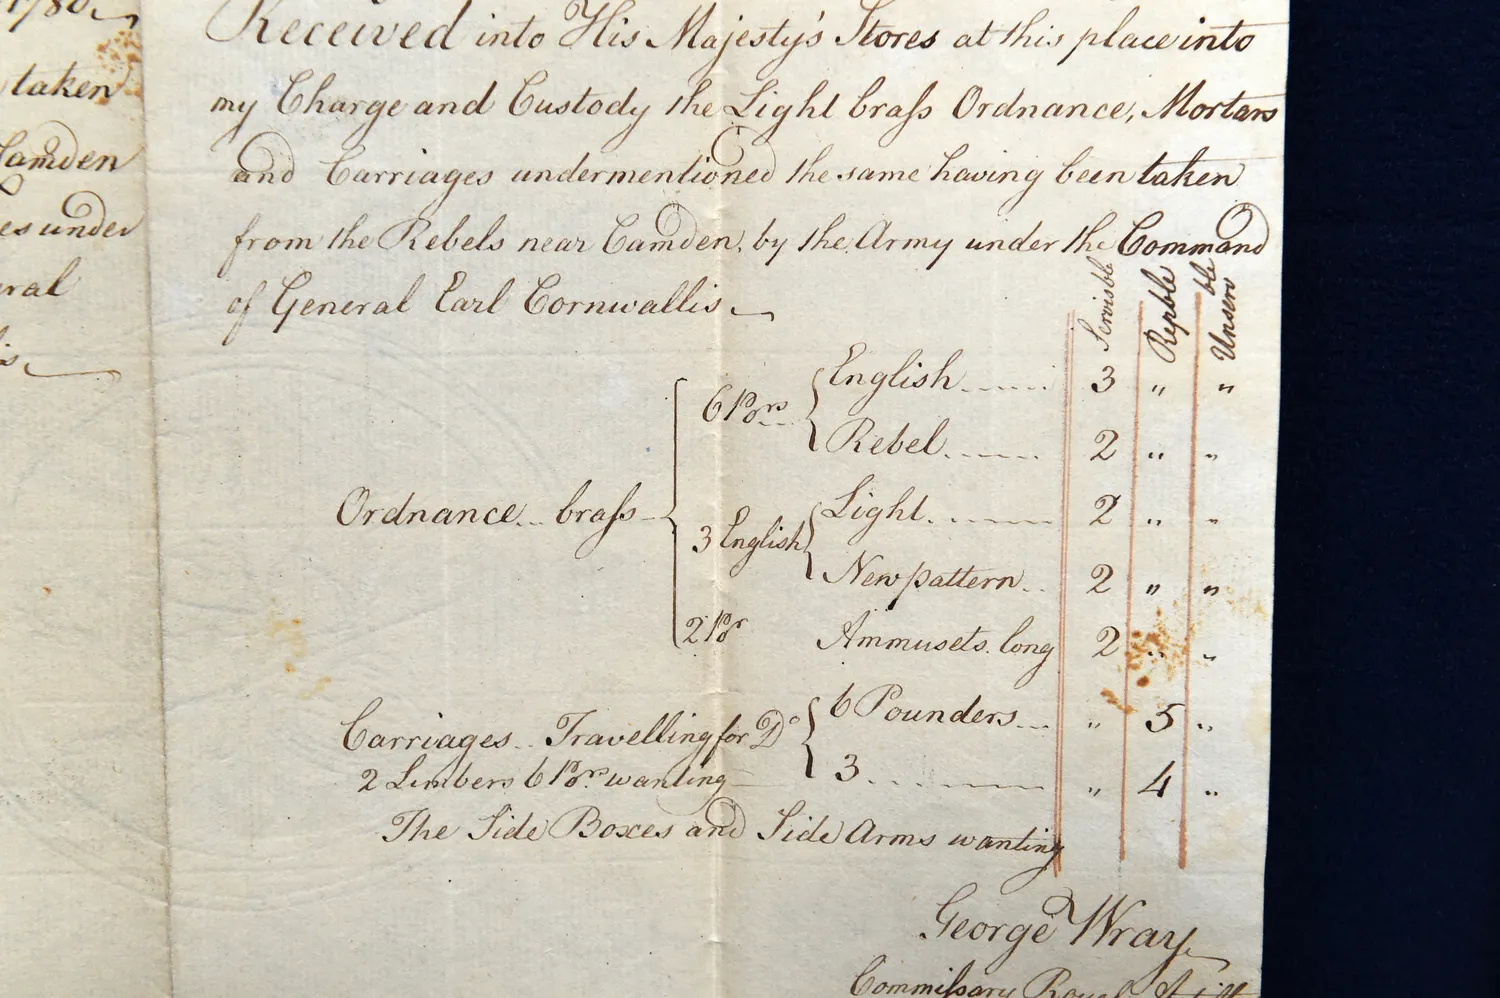 1780
taken
Camden
es under
ral
is
Received into His Majesty's Stores at this place into
my Charge and Custody the Light braſs Ordnance, Mortars
and Carriages undermentioned the same having been taken
from the Rebels near Camden, by the Army under the Command
of General Earl Cornwallis
Servisble Repble Unservble
Ordnance .. braſs
6 Pors { English ...... 3 " "
Rebel ...... 2 " "
3 English { Light ...... 2 " "
New pattern .. 2 " "
2 Pdr Ammusets. long 2 " "
Carriages .. Travelling for Do { 6 Pounders ... " 5 "
2 Limbers 6 Pors. wanting 3 ...... " 4 "
The Side Boxes and Side Arms wanting
George Wray
Commiſsary Royal